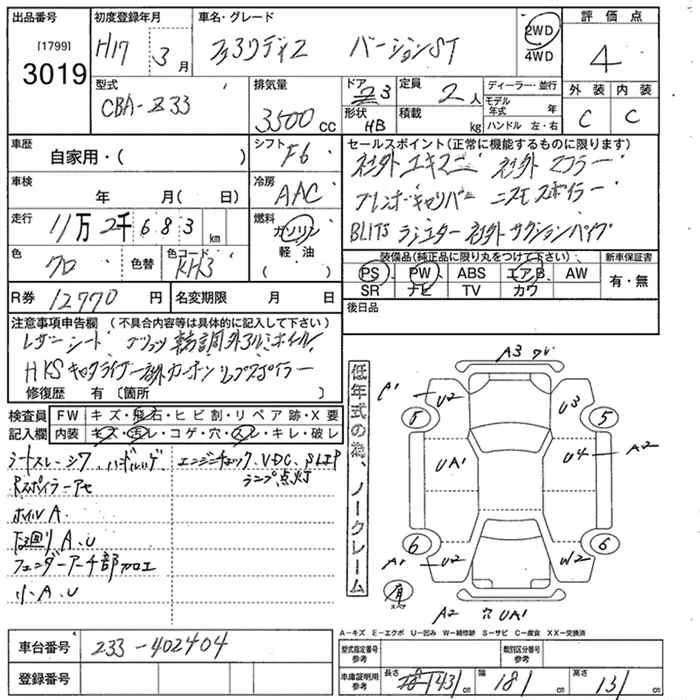 出品番号 初度登録年月 車名・グレード 評価点
[1799]
3019
H17年 3月 フェアレディZ バージョンST 2WD 4WD 4
型式 排気量 ドア 定員 ディーラー・並行 外装 内装
CBA-Z33 3500cc 3 2人 モデル年式 年 C C
形状 HB 積載 kg ハンドル 左・右
車歴 シフト セールスポイント(正常に機能するものに限ります)
自家用・( ) F6 社外エキマニ 社外マフラー
車検 冷房
年 月( 日) AAC ブレンボキャリパー ニスモスポイラー
走行 燃料
11万2千683km ガソリン 軽油 ( ) BLITSラジエター 社外サクションパイプ
色 色替 色コード 装備品(純正品に限り丸をつけて下さい) 新車保証書
クロ KH3 PS PW ABS エアB AW 有・無
SR ナビ TV カワ
R券 12770円 名変期限 月 日 後日品
注意事項申告欄 (不具合内容等は具体的に記入して下さい)
レザーシート 車調 外アルミホイル
HKSキャタライザー 社外カーボンリップスポイラー
修復歴 有 〔箇所 〕
検査員記入欄 FW キズ・飛石・ヒビ割・リペア跡・X要
内装 キズ・汚レ・コゲ・穴・スレ・キレ・破レ
シートスレ・シワ、ハンドルハゲ エンジンチェック、VDC、SLIP
ランプ点灯
Rスポイラーアセ
ホイルA
下回りA、U
フェンダーアーチ部加工
小A、U
低年式の為、ノークレーム
A3
A1 U2 U3
5 5
UA1 U4 A2
6 6
A1 U2 W2
有 スペア
A2 穴 UA1
A−キズ E−エクボ U−凹み W−補修跡 S−サビ C−腐食 XX−交換済
車台番号 Z33-402404 型式指定番号 参考 類別区分番号 参考
登録番号 車庫証明用 参考 長さ 431cm 幅 181cm 高さ 131cm